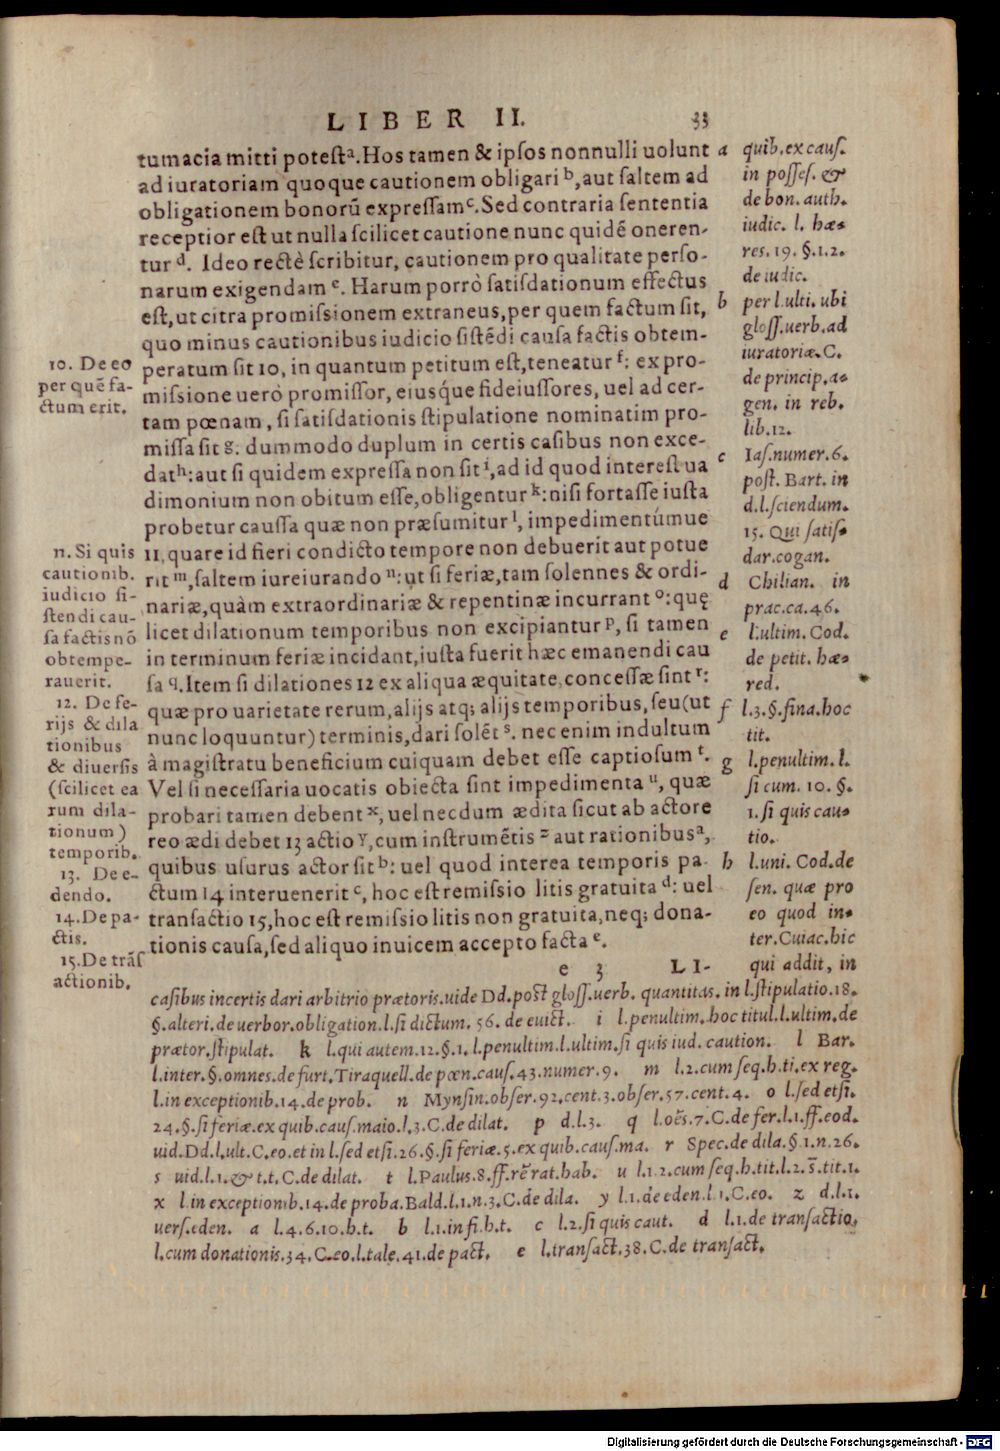 LIBER II. 33
tumacia mitti poteſt ᵃ. Hos tamen & ipſos nonnulli uolunt
ad iuratoriam quoque cautionem obligari ᵇ, aut ſaltem ad
obligationem bonorū expreſſam ᶜ. Sed contraria ſententia
receptior eſt ut nulla ſcilicet cautione nunc quidē oneren-
tur ᵈ. Ideo rectè ſcribitur, cautionem pro qualitate perſo-
narum exigendam ᵉ. Harum porrò ſatiſdationum effectus
eſt, ut citra promiſsionem extraneus, per quem factum ſit,
quo minus cautionibus iudicio ſiſtēdi cauſa factis obtem-
peratum ſit 10, in quantum petitum eſt, teneatur ᶠ: ex pro-
miſsione uerò promiſſor, eiusq́ue fideiuſſores, uel ad cer-
tam pœnam, ſi ſatiſdationis ſtipulatione nominatim pro-
miſſa ſit ᵍ: dummodo duplum in certis caſibus non exce-
dat ʰ: aut ſi quidem expreſſa non ſit ⁱ, ad id quod intereſt ua
dimonium non obitum eſſe, obligentur ᵏ: niſi fortaſſe iuſta
probetur cauſſa quæ non præſumitur ˡ, impedimentúmue
11, quare id fieri condicto tempore non debuerit aut potue
rit ᵐ, ſaltem iureiurando ⁿ: ut ſi feriæ, tam ſolennes & ordi-
nariæ, quàm extraordinariæ & repentinæ incurrant ᵒ: quę
licet dilationum temporibus non excipiantur ᵖ, ſi tamen
in terminum feriæ incidant, iuſta fuerit hæc emanendi cau
ſa q. Item ſi dilationes 12 ex aliqua æquitate conceſſæ ſint ʳ:
quæ pro uarietate rerum, alijs atq; alijs temporibus, ſeu (ut
nunc loquuntur) terminis, dari ſolēt ˢ. nec enim indultum
à magiſtratu beneficium cuiquam debet eſſe captioſum ᵗ.
Vel ſi neceſſaria uocatis obiecta ſint impedimenta ᵘ, quæ
probari tamen debent ˣ, uel necdum ædita ſicut ab actore
reo ædi debet 13 actio ʸ, cum inſtrumētis ᶻ aut rationibus ᵃ,
quibus uſurus actor ſit ᵇ: uel quod interea temporis pa-
ctum 14 interuenerit ᶜ, hoc eſt remiſsio litis gratuita ᵈ: uel
tranſactio 15, hoc eſt remiſsio litis non gratuita, neq; dona-
tionis cauſa, ſed aliquo inuicem accepto facta ᵉ.
e 3 LI-
10. De eo
per quē fa-
ctum erit.
11. Si quis
cautionib.
iudicio ſi-
ſtendi cau-
ſa factis nō
obtempe-
rauerit.
12. De fe-
rijs & dila
tionibus
& diuerſis
(ſcilicet ea
rum dila-
tionum)
temporib.
13. De e-
dendo.
14. De pa-
ctis.
15. De trāſ
actionib.
a quib. ex cauſ.
in poſſeſ. &
de bon. auth.
iudic. l. hæ-
res. 19. §. 1. 2.
de iudic.
b per l. ulti. ubi
gloſſ. uerb. ad
iuratoriæ. C.
de princip. a-
gen. in reb.
lib. 12.
c Iaſ. numer. 6.
poſt. Bart. in
d. l. ſciendum.
15. Qui ſatiſ-
dar. cogan.
d Chilian. in
prac. ca. 46.
e l. ultim. Cod.
de petit. hæ-
red.
f l. 3. §. fina. hoc
tit.
g l. penultim. l.
ſi cum. 10. §.
1. ſi quis cau-
tio.
h l. uni. Cod. de
ſen. quæ pro
eo quod in-
ter. Cuiac. hic
qui addit, in
caſibus incertis dari arbitrio prætoris. uide Dd. poſt gloſſ. uerb. quantitas. in l. ſtipulatio. 18.
§. alteri. de uerbor. obligation. l. ſi dictum. 56. de euict. i l. penultim. hoc titul. l. ultim. de
prætor. ſtipulat. k l. qui autem. 12. §. 1. l. penultim. l. ultim. ſi quis iud. caution. l Bar.
l. inter. §. omnes. de furt. Tiraquell. de pœn. cauſ. 43. numer. 9. m l. 2. cum ſeq. h. ti. ex reg.
l. in exceptionib. 14. de prob. n Mynſin. obſer. 92. cent. 3. obſer. 57. cent. 4. o l. ſed etſi.
24. §. ſi feriæ. ex quib. cauſ. maio. l. 3. C. de dilat. p d. l. 3. q l. oēs. 7. C. de fer. l. 1. ff. eod.
uid. Dd. l. ult. C. eo. et in l. ſed etſi. 26. §. ſi feriæ. 5. ex quib. cauſ. ma. r Spec. de dila. §. 1. n. 26.
s uid. l. 1. & t. t. C. de dilat. t l. Paulus. 8. ff. rē rat. hab. u l. 1. 2. cum ſeq. h. tit. l. 2. s̄. tit. 1.
x l. in exceptionib. 14. de proba. Bald. l. 1. n. 3. C. de dila. y l. 1. de eden. l. 1. C. eo. z d. l. 1.
uerſ. eden. a l. 4. 6. 10. h. t. b l. 1. in fi. h. t. c l. 2. ſi quis caut. d l. 1. de tranſactio.
l. cum donationis. 34. C. eo. l. tale. 41. de pact. e l. tranſact. 38. C. de tranſact.
Digitalisierung gefördert durch die Deutsche Forschungsgemeinschaft - DFG